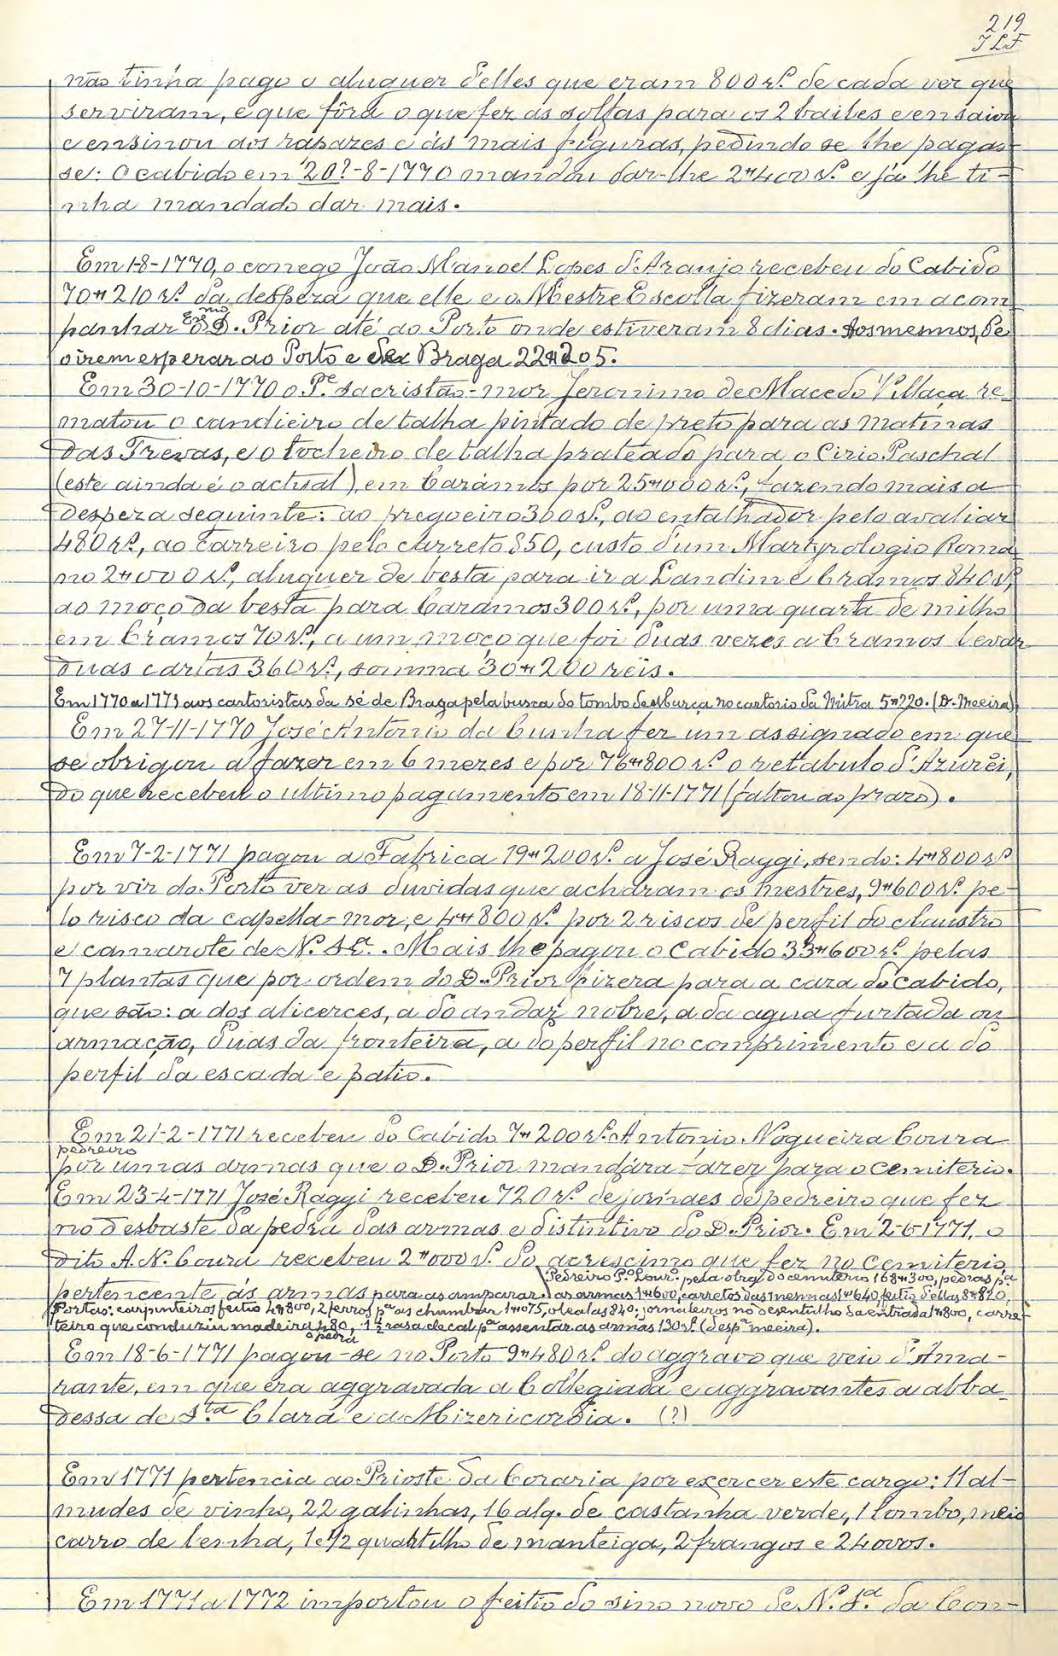 219
não tinha pago o aluguer d'elles que eram 800 rs. de cada vez que
serviram, e que fôra o que fez as solfas para os 2 bailes e ensaiou
e ensinou aos rapazes e ás mais figuras, pedindo se lhe pagas-
se: O cabido em 20?-8-1770 mandou dar-lhe 2#400 rs. e já lhe ti-
nha mandado dar mais.
Em 1-8-1770, o conego João Manoel Lopes d'Araujo recebeu do Cabido
70#210 rs. da despeza que elle e o Mestre Escolla fizeram em acom
panhar Exmo. D. Prior até ao Porto onde estiveram 8 dias. Aos mesmos, de
o irem esperar ao Porto e Braga 22#205.
Em 30-10-1770 o Pe. sacristão-mor Jeronimo de Macedo Villaça re-
matou o candieiro de talha pintado de preto para as matinas
das Trevas, e o tocheiro de talha prateado para o Cirio Paschal
(este ainda é o actual), em Carámos por 25#000 rs., fazendo mais a
despeza seguinte: ao pregoeiro 300 rs., ao entalhador pelo avaliar
480 rs., ao carreiro pelo carreto 850, custo d'um Martyrologio Roma-
no 2#000 rs., aluguer de besta para ir a Landim e Cramos 840 rs.,
ao moço da besta para Carámos 300 rs., por uma quarta de milho
em Cramos 70 rs., a um moço que foi duas vezes a Cramos levar
duas cartas 360 rs., somma 30#200 reis.
Em 1770 a 1771 aos cartoristas da sé de Braga pela busca do tombo de Murça no cartorio da Mitra 5#220. (D. Meeira)
Em 27-11-1770 José Antonio da Cunha fez um assignado em que
se obrigou a fazer em 6 mezes e por 76#800 rs. o retabulo d'Azurêi,
do que recebeu o ultimo pagamento em 18-11-1771 (faltou ao prazo).
Em 7-2-1771 pagou a Fabrica 19#200 rs. a José Raggi, sendo: 4#800 rs.
por vir do Porto ver as duvidas que acharam os mestres, 9#600 rs. pe-
lo risco da capella-mor, e 4#800 rs. por 2 riscos de perfil do claustro
e camarote de N. Sr. Mais lhe pagou o Cabido 33#600 rs. pelas
7 plantas que por ordem do D. Prior fizera para a caza do Cabido,
que são: a dos alicerces, a do andar nobre, a da agua furtada ou
armação, duas da fronteira, a do perfil no comprimento e a do
perfil da escada e patio.
Em 21-2-1771 recebeu do Cabido 7#200 rs. Antonio Nogueira Coura
pedreiro
por umas armas que o D. Prior mandára fazer para o cemiterio.
Em 23-4-1771 José Raggi recebeu 720 rs. de jornaes de pedreiro que fez
no desbaste da pedra das armas e distintivo do D. Prior. Em 2-6-1771, o
dito A. N. Coura recebeu 2#000 rs. do acrescimo que fez no cemiterio
Pedreiro P. Lour. pela obra do cemiterio 168#300, pedras pa.
pertencente ás armas para as amparar. as armas 1#600, carretos das mesmas 1#640, feitio d'ellas 8#820,
Portas: carpinteiros feitio 14#800, 2 ferros pa. as chumbar 1#075, oleal-as 840; jornaleiros no desentulho da entrada 1#800, carre-
teiro que conduziu madeira 480, 1½ rasa de cal pa. assentar as armas 130 rs. (despa. meeira).
a pedra
Em 18-6-1771 pagou-se no Porto 9#480 rs. do aggravo que veio d'Ama-
rante, em que era aggravada a Collegiada e aggravantes a abba-
dessa de Sta. Clara e a Mizericordia. (?)
Em 1771 pertencia ao Prioste da Coraria por exercer este cargo: 11 al-
mudes de vinho, 22 galinhas, 16 alq. de castanha verde, 1 lombo, meio
carro de lenha, 1 e ½ quartilho de manteiga, 2 frangos e 24 ovos.
Em 1771 a 1772 importou o feitio do sino novo de N. Sa. da Con-